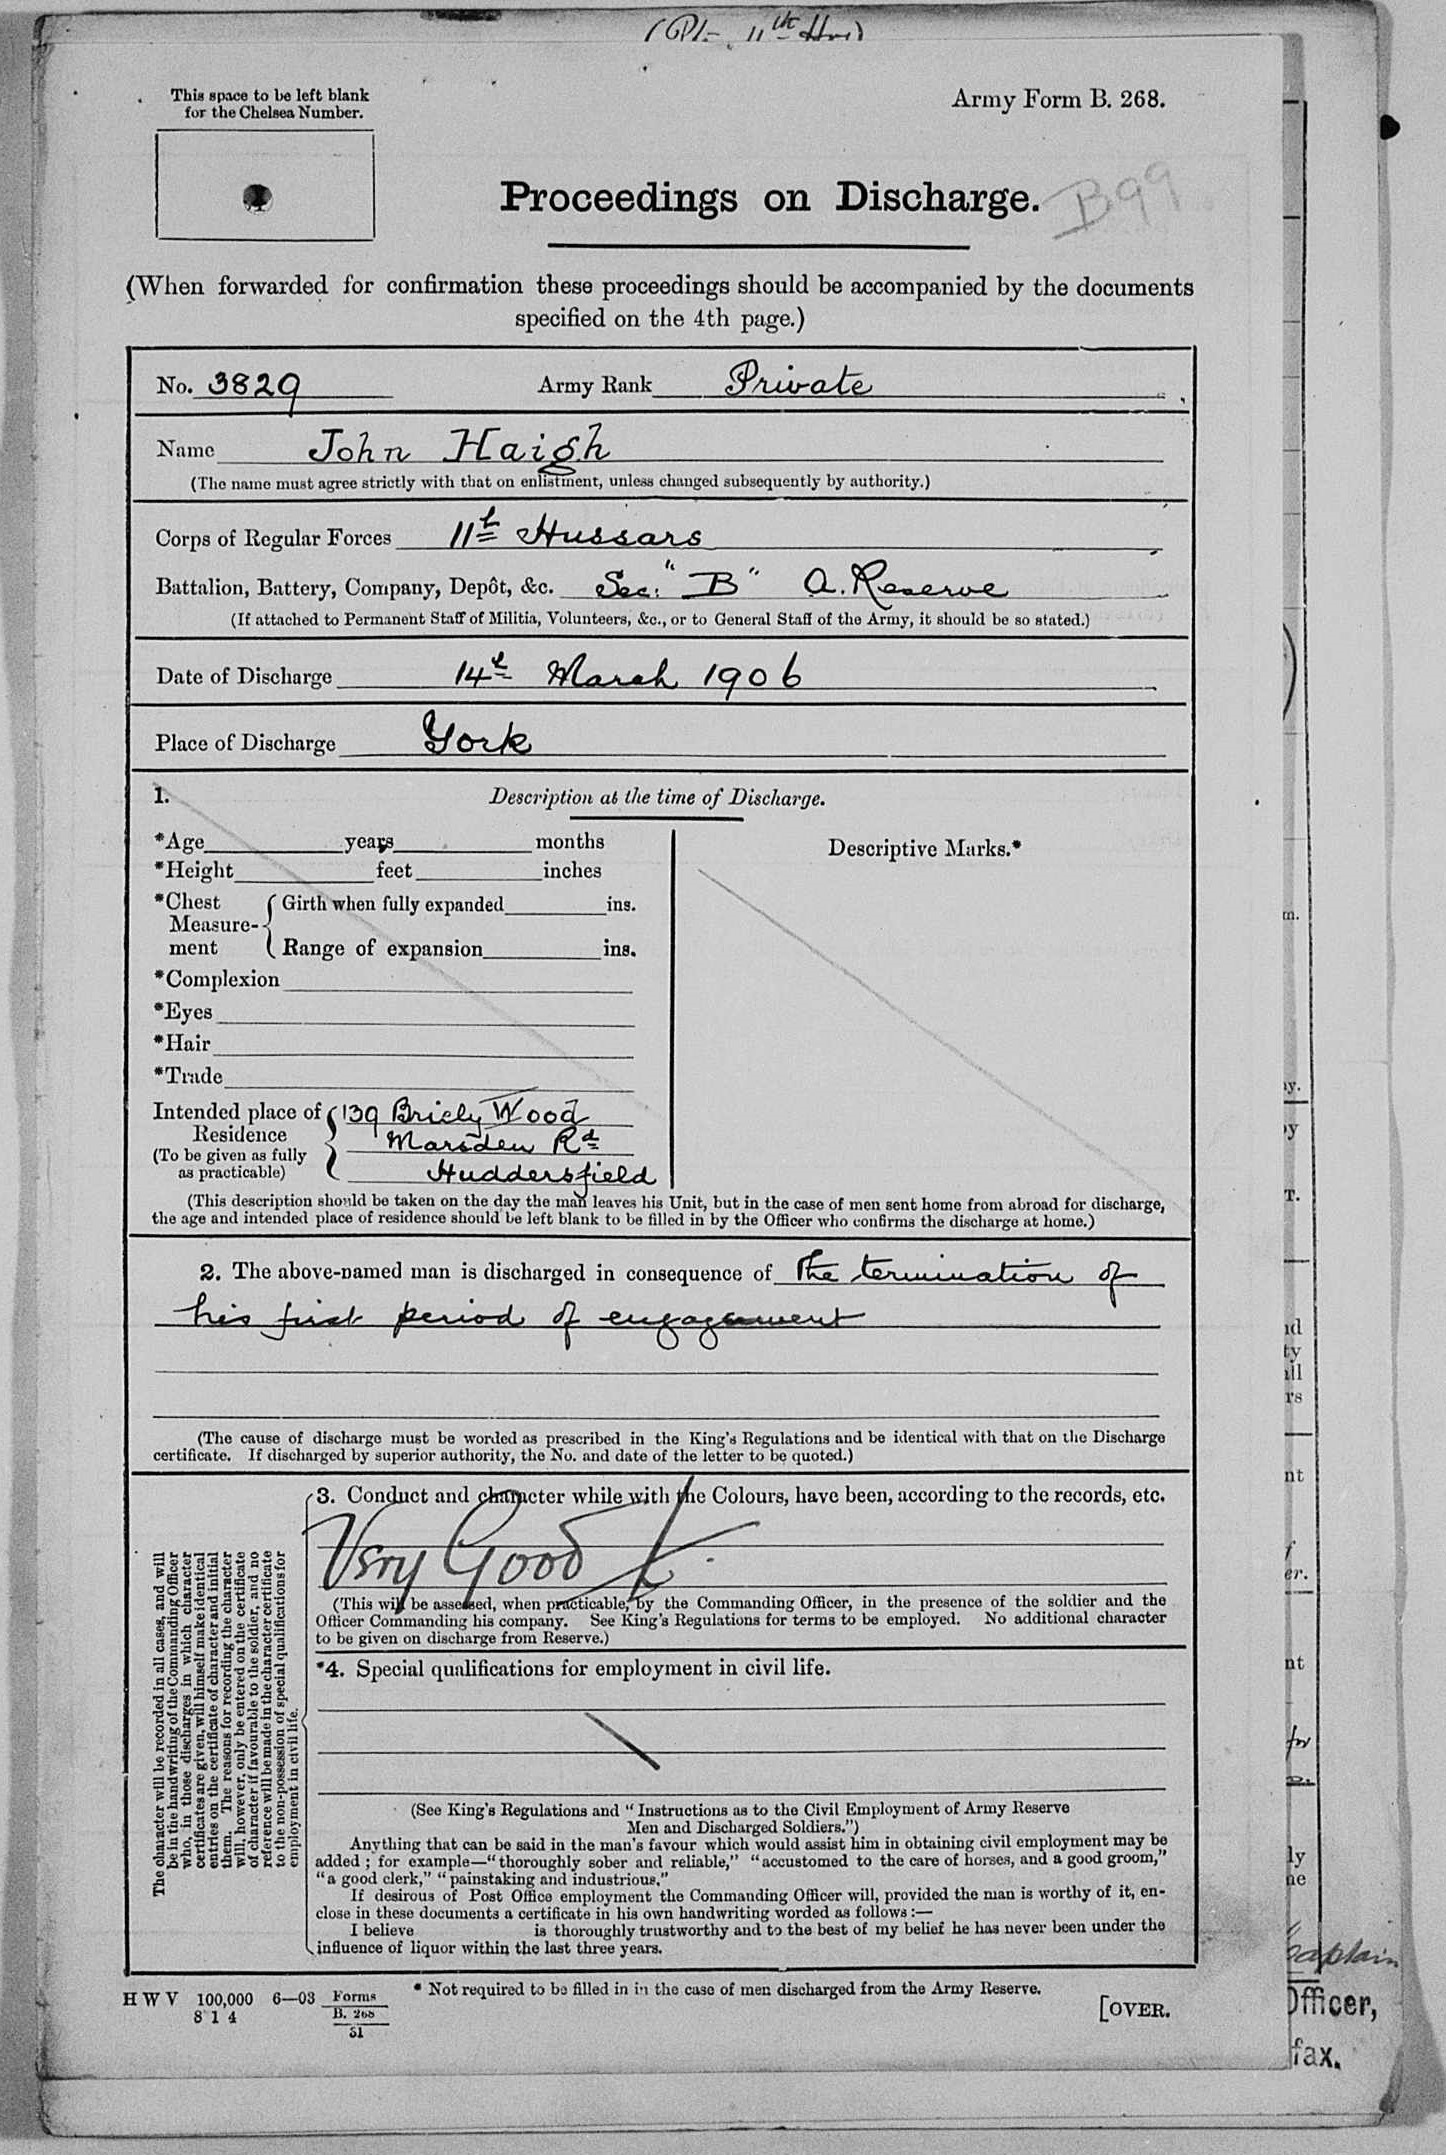 (Pl- 11th Hrs)
This space to be left blank
for the Chelsea Number.
Army Form B. 268.
Proceedings on Discharge.
B99
(When forwarded for confirmation these proceedings should be accompanied by the documents
specified on the 4th page.)
No. 3829 Army Rank Private
Name John Haigh
(The name must agree strictly with that on enlistment, unless changed subsequently by authority.)
Corps of Regular Forces 11th Hussars
Battalion, Battery, Company, Depôt, &c. Sec: "B" A. Reserve
(If attached to Permanent Staff of Militia, Volunteers, &c., or to General Staff of the Army, it should be so stated.)
Date of Discharge 14th March 1906
Place of Discharge York
1. Description at the time of Discharge.
*Age years months
Descriptive Marks.*
*Height feet inches
*Chest Measurement
Girth when fully expanded ins.
Range of expansion ins.
*Complexion
*Eyes
*Hair
*Trade
Intended place of Residence
(To be given as fully as practicable)
139 Briely Wood
Marsden Rd
Huddersfield
(This description should be taken on the day the man leaves his Unit, but in the case of men sent home from abroad for discharge,
the age and intended place of residence should be left blank to be filled in by the Officer who confirms the discharge at home.)
2. The above-named man is discharged in consequence of the termination of
his first period of engagement
(The cause of discharge must be worded as prescribed in the King's Regulations and be identical with that on the Discharge
certificate. If discharged by superior authority, the No. and date of the letter to be quoted.)
The character will be recorded in all cases, and will
be in the handwriting of the Commanding Officer
who, in those discharges in which character
certificates are given, will himself make identical
entries on the certificate of character and initial
them. The reasons for recording the character
will, however, only be entered on the certificate
of character if favourable to the soldier, and no
reference will be made in the character certificate
to the non-possession of special qualifications for
employment in civil life.
3. Conduct and character while with the Colours, have been, according to the records, etc.
Very Good
(This will be assessed, when practicable, by the Commanding Officer, in the presence of the soldier and the
Officer Commanding his company. See King's Regulations for terms to be employed. No additional character
to be given on discharge from Reserve.)
*4. Special qualifications for employment in civil life.
(See King's Regulations and "Instructions as to the Civil Employment of Army Reserve
Men and Discharged Soldiers.")
Anything that can be said in the man's favour which would assist him in obtaining civil employment may be
added; for example—"thoroughly sober and reliable," "accustomed to the care of horses, and a good groom,"
"a good clerk," "painstaking and industrious,"
If desirous of Post Office employment the Commanding Officer will, provided the man is worthy of it, en-
close in these documents a certificate in his own handwriting worded as follows:—
I believe is thoroughly trustworthy and to the best of my belief he has never been under the
influence of liquor within the last three years.
* Not required to be filled in in the case of men discharged from the Army Reserve.
H W V 100,000 6—03 Forms
8 1 4 B. 268
51
[OVER.
Captain
Officer,
fax.